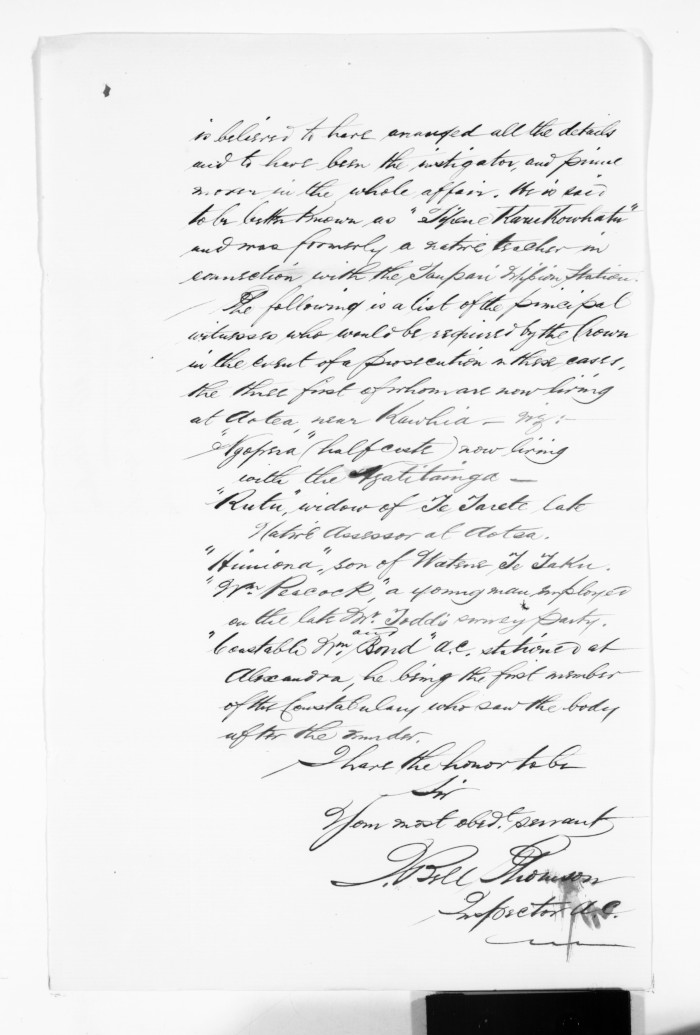 is believed to have arranged all the details
and to have been the instigator, and prime
mover in the whole affair. He is said
to be better known as "Tipene Karukowhatu"
and was formerly a native teacher in
connection with the Taupari Mission Station.
The following is a list of the principal
witnesses who would be required by the Crown
in the event of a prosecution in these cases,
the three first of whom are now living
at Aotea, near Kawhia — viz:-
"Ngopera" (half caste) now living
with the Ngatitainga —
"Rutu", widow of Te Tarete late
Native Assessor at Aotea.
"Himiona", son of Watene Te Taku.
"Wm Peacock", a young man employed
on the late Mr. Todd's survey party.
"Constable Wm. Bond" A.C. stationed at
Alexandra, he being the first member
of the Constabulary who saw the body
after the murder.
I have the honor to be
Sir
Your most obedt. servant
Bell Thomson
Inspector A.C.